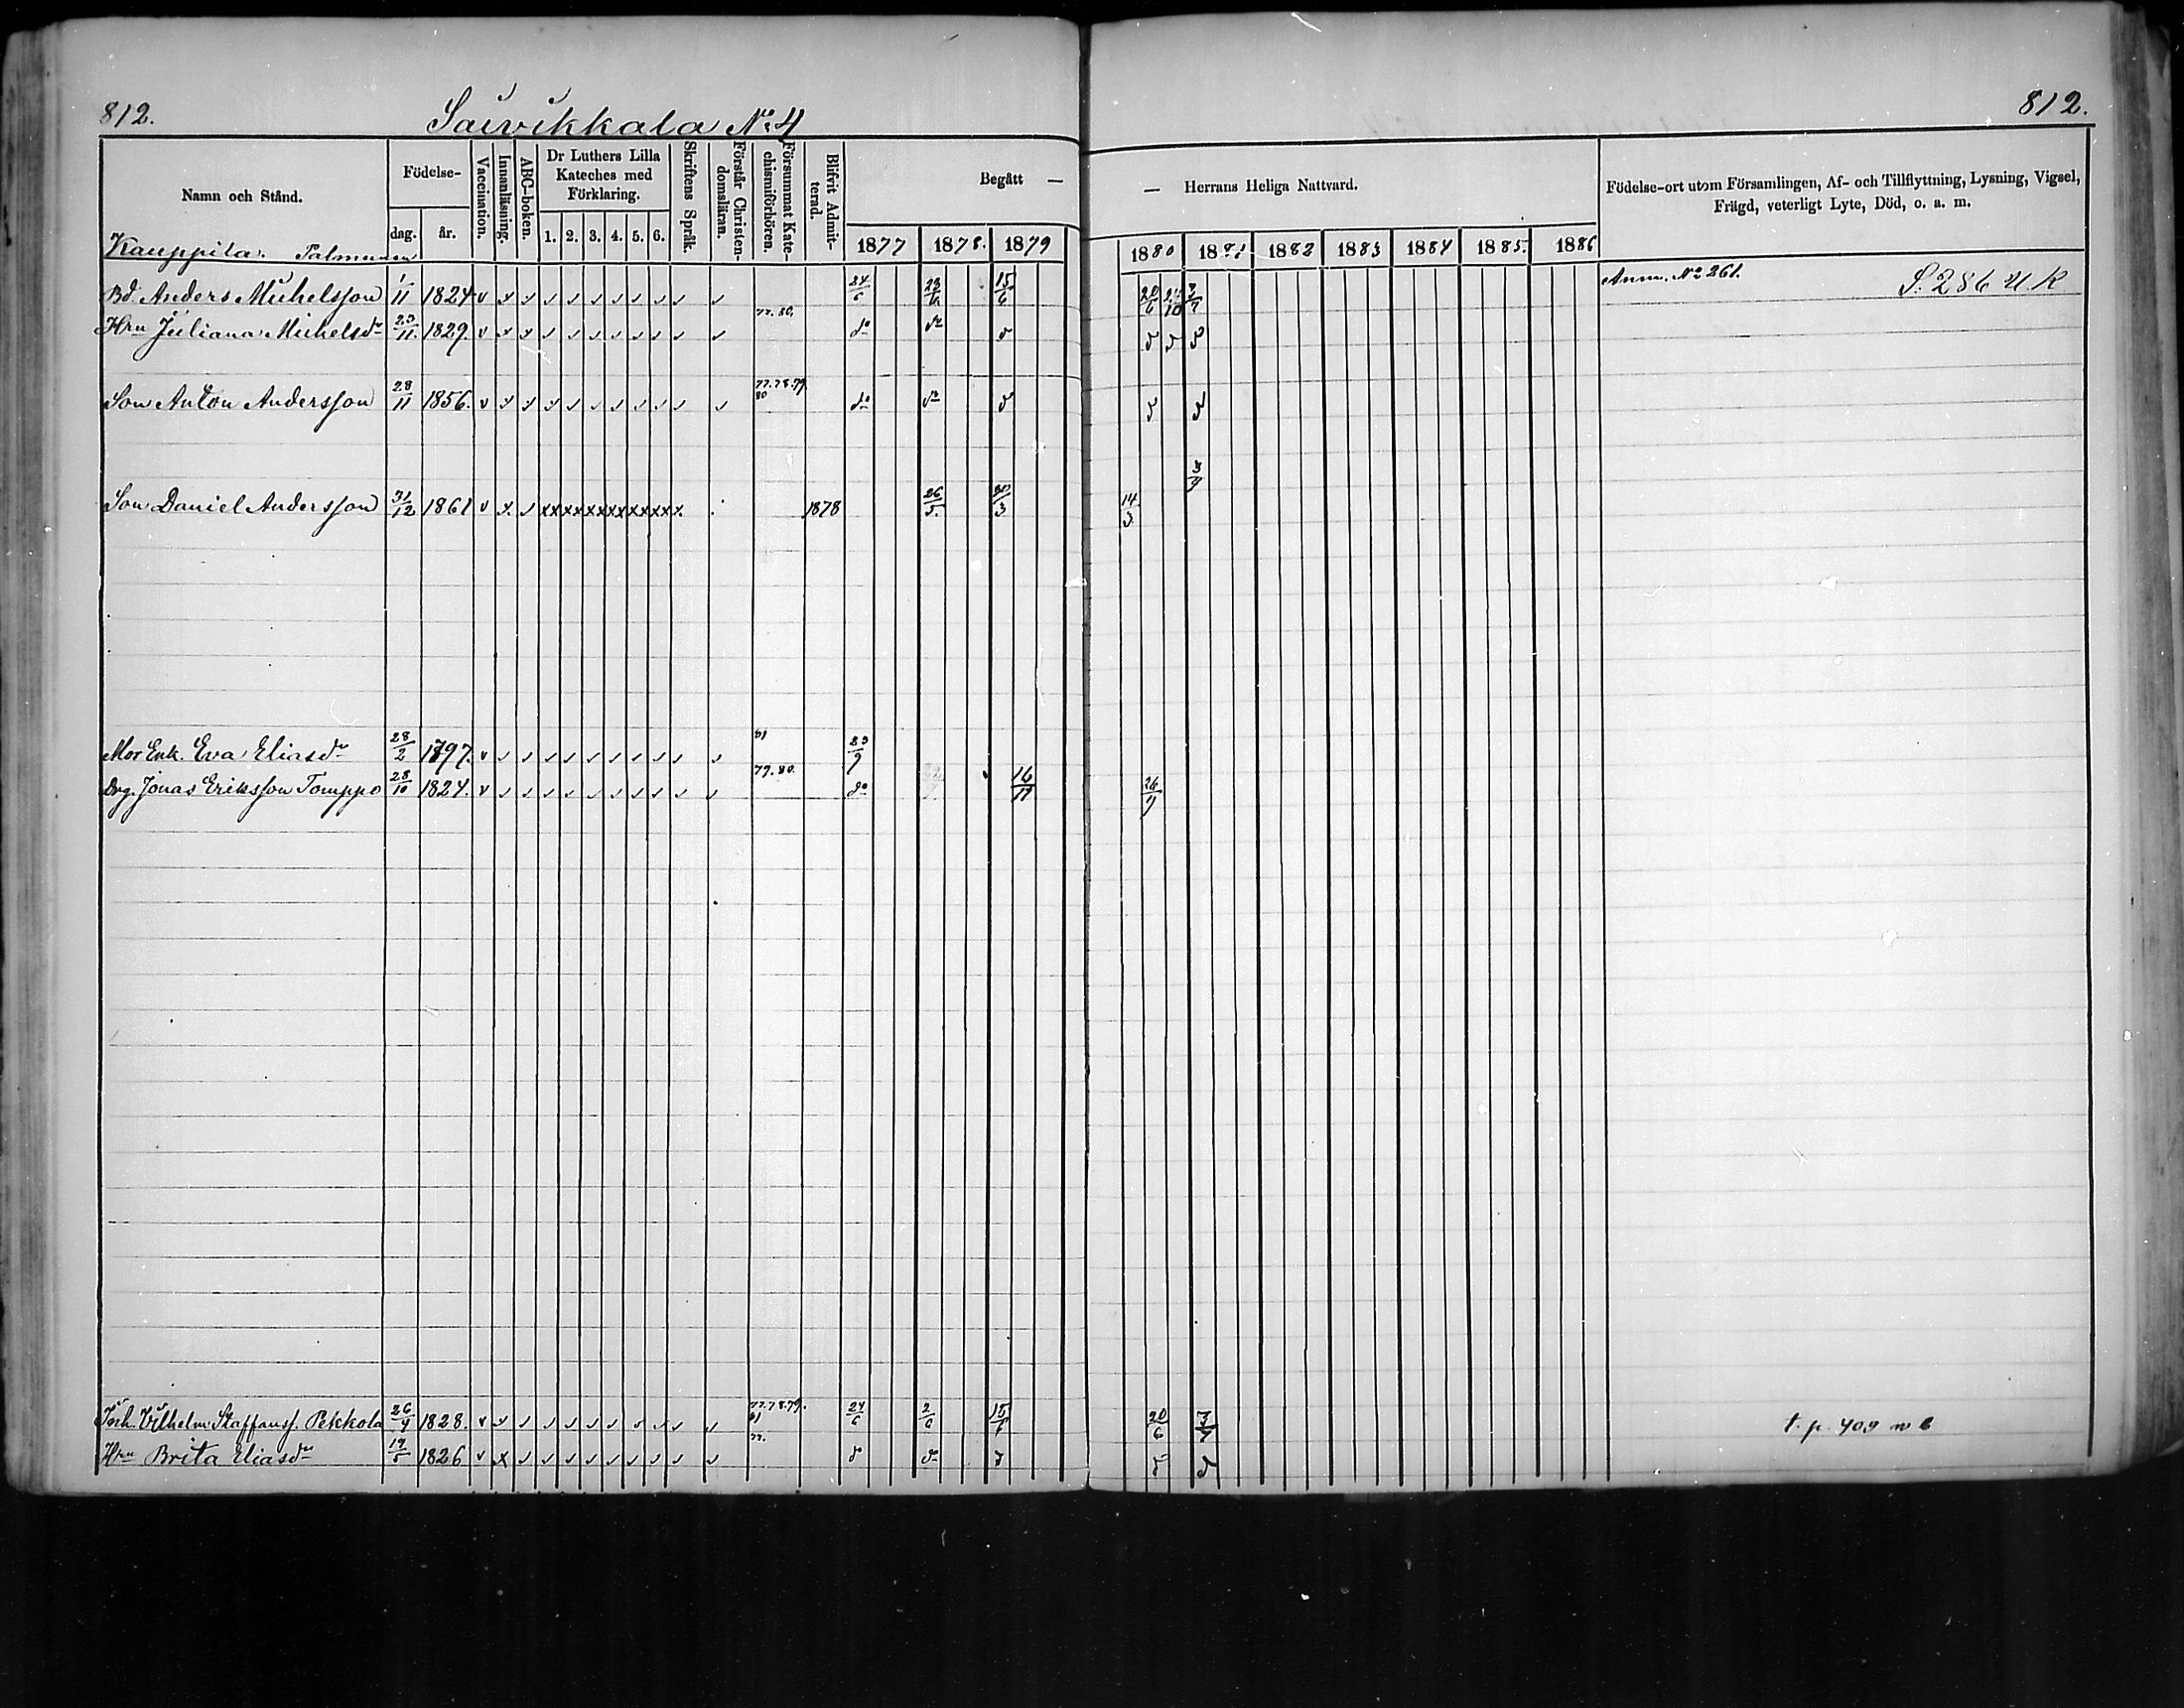 812.
Saivikkala No 4
812.
Namn och Stånd.
Födelse-
dag.
år.
Vaccination.
Innanläsning.
ABC-boken.
Dr Luthers Lilla
Kateches med
Förklaring.
1. 2. 3. 4. 5. 6.
Skriftens Språk.
Förstår Christen-
domsläran.
Försummat Kate-
chismiförhören.
Blifvit Admit-
terad.
Begått —
1877 1878. 1879
— Herrans Heliga Nattvard.
1880 1881 1882 1883 1884 1885. 1886
Födelse-ort utom Församlingen, Af- och Tillflyttning, Lysning, Vigsel,
Frägd, veterligt Lyte, Död, o. a. m.
Kauppila. Palmunen
Bd Anders Michelsson 1/11 1824 v 24/6 23/6 15/6 20/6 3/7 Anm. No 261. S. 286 U R
Hru Juliana Michelsdr 23/11. 1829. v 77. 80. do do d d d d
Son Anton Andersson 28/11 1856. v 77. 78. 79. 80 do do d d d
Son Daniel Andersson 31/12 1861 v xxxxxxxxxxxx 1878 26/5. 30/3 14/3 3/9
Mor Enk. Eva Eliasdr 28/2 1797. v 81 23/9
Drg. Jonas Eriksson Tomppo 28/10 1824. v 79. 80. do 16/11 26/9
Inh. Vilhelm Staffanss. Pekkola 26/4 1828. v 77. 78. 79. 81 24/6 2/6 15/6 20/6 3/7 t. p. 409 w b
Hru Brita Eliasdr 19/5 1826 v x 77. d do d d d